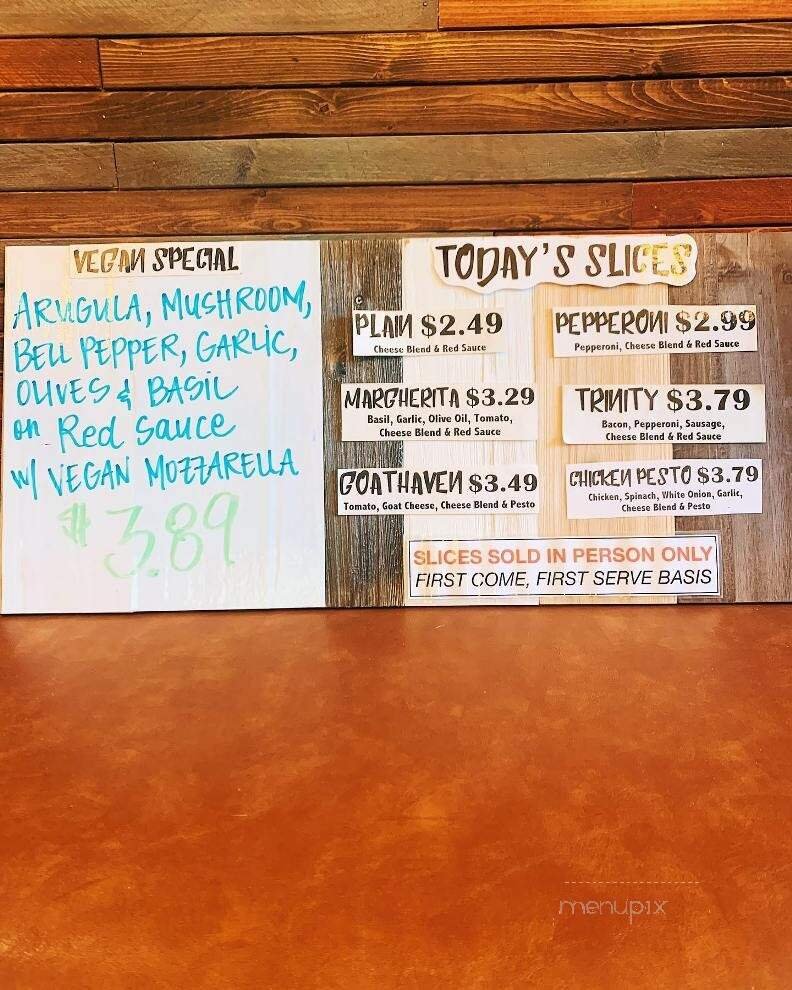 VEGAN SPECIAL
ARUGULA, MUSHROOM,
BELL PEPPER, GARLIC,
OLIVES & BASIL
on Red Sauce
W/ VEGAN MOZZARELLA
$3.89
TODAY'S SLICES
PLAIN $2.49
Cheese Blend & Red Sauce
PEPPERONI $2.99
Pepperoni, Cheese Blend & Red Sauce
MARGHERITA $3.29
Basil, Garlic, Olive Oil, Tomato,
Cheese Blend & Red Sauce
TRINITY $3.79
Bacon, Pepperoni, Sausage,
Cheese Blend & Red Sauce
GOATHAVEN $3.49
Tomato, Goat Cheese, Cheese Blend & Pesto
CHICKEN PESTO $3.79
Chicken, Spinach, White Onion, Garlic,
Cheese Blend & Pesto
SLICES SOLD IN PERSON ONLY
FIRST COME, FIRST SERVE BASIS
menupix